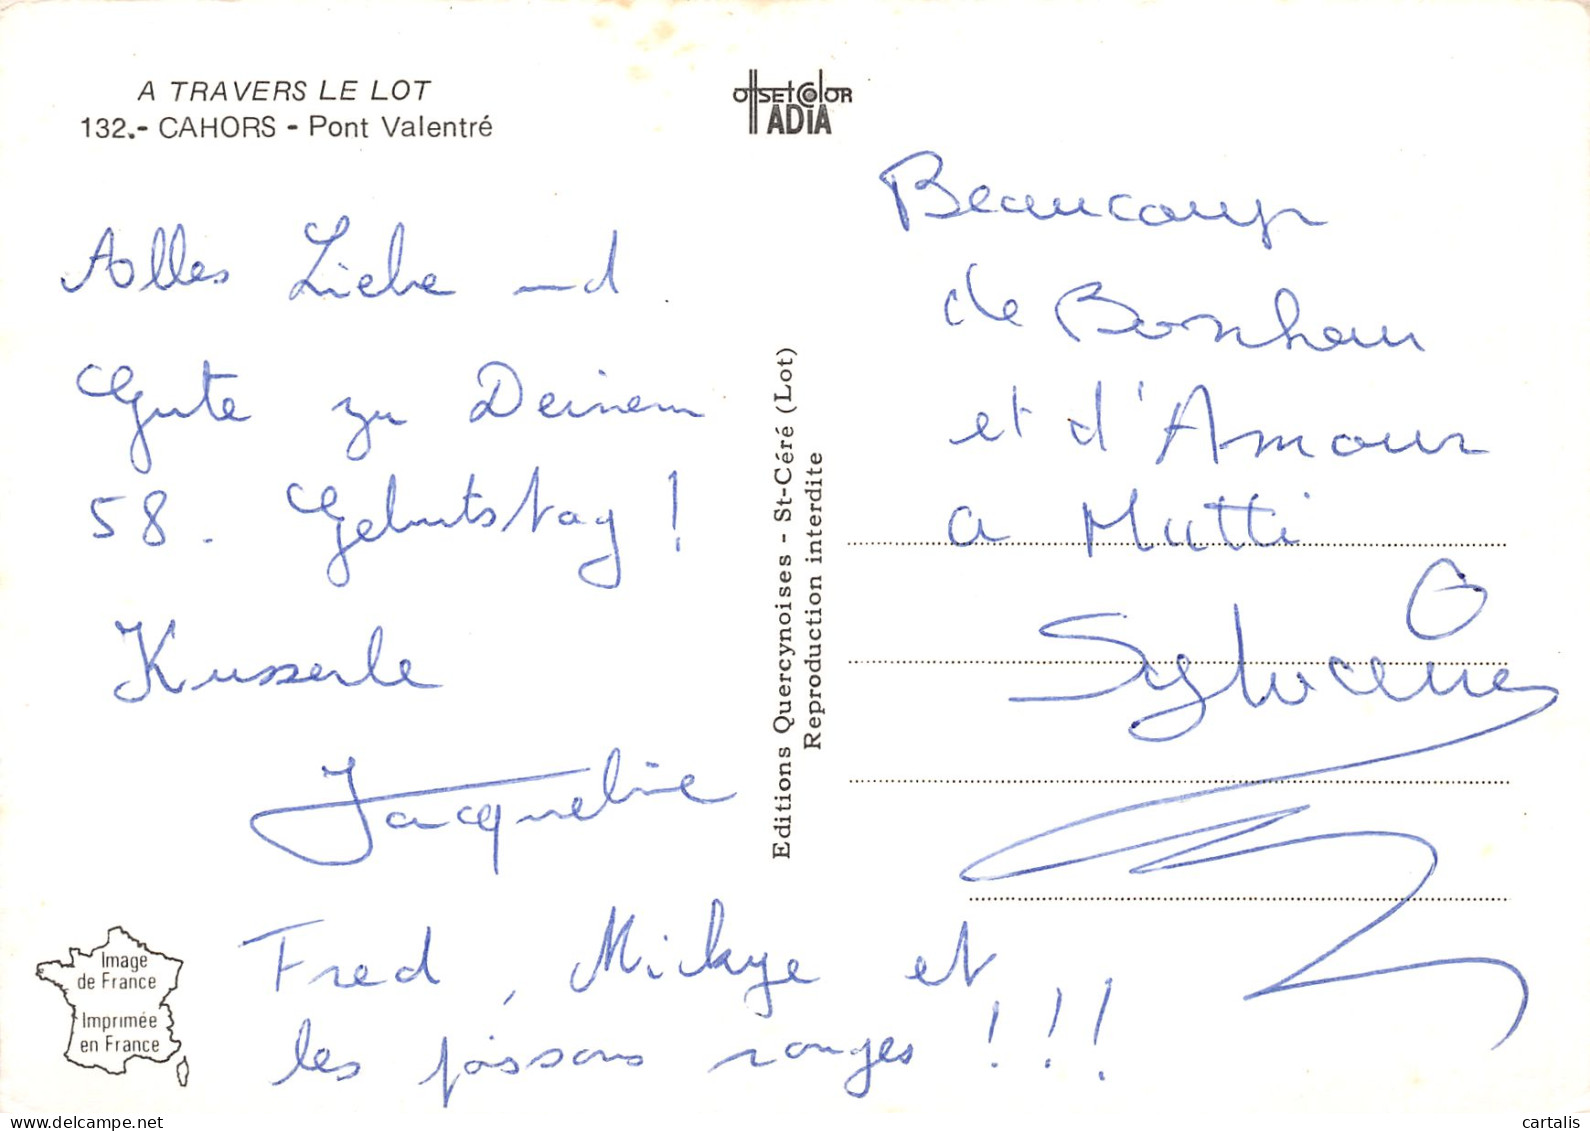 A TRAVERS LE LOT
132.- CAHORS - Pont Valentré
Alles Liebe und
Gute zu Deinem
58. Geburtstag !
Kusserle
Jacqueline
Fred, Mickye et
les poissons rouges !!!
Image
de France
Imprimée
en France
offsetcolor
ADIA
Editions Quercynoises - St-Céré (Lot)
Reproduction interdite
Beaucoup
de Bonheur
et d'Amour
a Mutti
cartalis